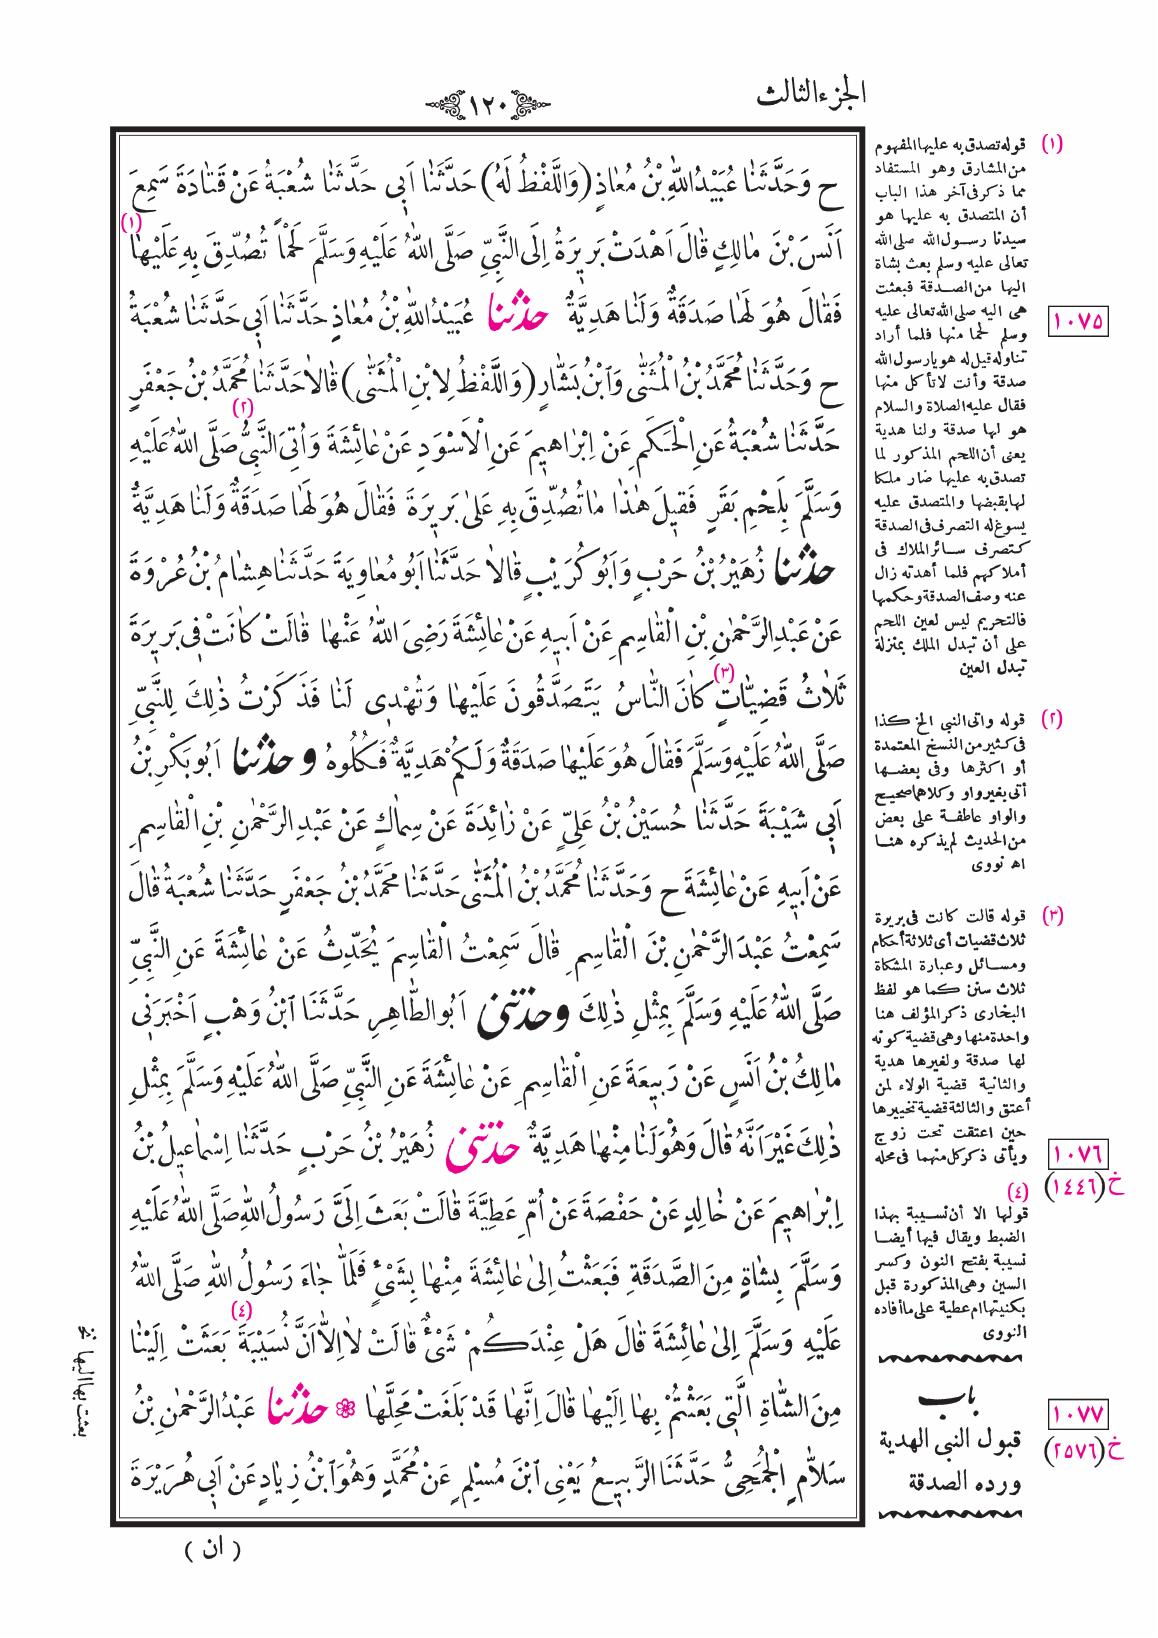 الجزء الثالث
١٢٠
ح وَحَدَّثَنَا عُبَيْدُ اللهِ بْنُ مُعَاذٍ (وَاللَّفْظُ لَهُ) حَدَّثَنَا اَبِي حَدَّثَنَا شُعْبَةُ عَنْ قَتَادَةَ سَمِعَ
اَنَسَ بْنَ مَالِكٍ قَالَ اَهْدَتْ بَرِيرَةُ اِلَى النَّبِيِّ صَلَّى اللهُ عَلَيْهِ وَسَلَّمَ لَحْماً تُصُدِّقَ بِهِ عَلَيْهَا (١)
فَقَالَ هُوَ لَهَا صَدَقَةٌ وَلَنَا هَدِيَّةٌ حدثنا عُبَيْدُ اللهِ بْنُ مُعَاذٍ حَدَّثَنَا اَبِي حَدَّثَنَا شُعْبَةُ
ح وَحَدَّثَنَا مُحَمَّدُ بْنُ الْمُثَنَّى وَابْنُ بَشَّارٍ (وَاللَّفْظُ لِابْنِ الْمُثَنَّى) قَالَا حَدَّثَنَا مُحَمَّدُ بْنُ جَعْفَرٍ
حَدَّثَنَا شُعْبَةُ عَنِ الْحَكَمِ عَنْ اِبْرَاهِيمَ عَنِ الْاَسْوَدِ عَنْ عَائِشَةَ (٢) وَاُتِىَ النَّبِيُّ صَلَّى اللهُ عَلَيْهِ
وَسَلَّمَ بِلَحْمِ بَقَرٍ فَقِيلَ هٰذَا مَا تُصُدِّقَ بِهِ عَلَى بَرِيرَةَ فَقَالَ هُوَ لَهَا صَدَقَةٌ وَلَنَا هَدِيَّةٌ
حدثنا زُهَيْرُ بْنُ حَرْبٍ وَاَبُو كُرَيْبٍ قَالَا حَدَّثَنَا اَبُو مُعَاوِيَةَ حَدَّثَنَا هِشَامُ بْنُ عُرْوَةَ
عَنْ عَبْدِ الرَّحْمٰنِ بْنِ الْقَاسِمِ عَنْ اَبِيهِ عَنْ عَائِشَةَ رَضِىَ اللهُ عَنْهَا قَالَتْ كَانَتْ فِي بَرِيرَةَ
ثَلَاثُ قَضِيَّاتٍ (٣) كَانَ النَّاسُ يَتَصَدَّقُونَ عَلَيْهَا وَتُهْدِى لَنَا فَذَكَرْتُ ذٰلِكَ لِلنَّبِيِّ
صَلَّى اللهُ عَلَيْهِ وَسَلَّمَ فَقَالَ هُوَ عَلَيْهَا صَدَقَةٌ وَلَكُمْ هَدِيَّةٌ فَكُلُوهُ وحدثنا اَبُو بَكْرِ بْنُ
اَبِي شَيْبَةَ حَدَّثَنَا حُسَيْنُ بْنُ عَلِيٍّ عَنْ زَائِدَةَ عَنْ سِمَاكٍ عَنْ عَبْدِ الرَّحْمٰنِ بْنِ الْقَاسِمِ
عَنْ اَبِيهِ عَنْ عَائِشَةَ ح وَحَدَّثَنَا مُحَمَّدُ بْنُ الْمُثَنَّى حَدَّثَنَا مُحَمَّدُ بْنُ جَعْفَرٍ حَدَّثَنَا شُعْبَةُ قَالَ
سَمِعْتُ عَبْدَ الرَّحْمٰنِ بْنَ الْقَاسِمِ قَالَ سَمِعْتُ الْقَاسِمَ يُحَدِّثُ عَنْ عَائِشَةَ عَنِ النَّبِيِّ
صَلَّى اللهُ عَلَيْهِ وَسَلَّمَ بِمِثْلِ ذٰلِكَ وحدثني اَبُو الطَّاهِرِ حَدَّثَنَا ابْنُ وَهْبٍ اَخْبَرَنِي
مَالِكُ بْنُ اَنَسٍ عَنْ رَبِيعَةَ عَنِ الْقَاسِمِ عَنْ عَائِشَةَ عَنِ النَّبِيِّ صَلَّى اللهُ عَلَيْهِ وَسَلَّمَ بِمِثْلِ
ذٰلِكَ غَيْرَ اَنَّهُ قَالَ وَهُوَ لَنَا مِنْهَا هَدِيَّةٌ حدثني زُهَيْرُ بْنُ حَرْبٍ حَدَّثَنَا اِسْمَاعِيلُ بْنُ
اِبْرَاهِيمَ عَنْ خَالِدٍ عَنْ حَفْصَةَ عَنْ اُمِّ عَطِيَّةَ قَالَتْ بَعَثَ اِلَيَّ رَسُولُ اللهِ صَلَّى اللهُ عَلَيْهِ
وَسَلَّمَ بِشَاةٍ مِنَ الصَّدَقَةِ فَبَعَثْتُ اِلَى عَائِشَةَ مِنْهَا بِشَىْءٍ فَلَمَّا جَاءَ رَسُولُ اللهِ صَلَّى اللهُ
عَلَيْهِ وَسَلَّمَ اِلَى عَائِشَةَ قَالَ هَلْ عِنْدَكُمْ شَىْءٌ قَالَتْ لَا اِلَّا اَنَّ نُسَيْبَةَ (٤) بَعَثَتْ اِلَيْنَا
مِنَ الشَّاةِ الَّتِي بَعَثْتُمْ بِهَا اِلَيْهَا قَالَ اِنَّهَا قَدْ بَلَغَتْ مَحِلَّهَا ❁ حدثنا عَبْدُ الرَّحْمٰنِ بْنُ
سَلَّامٍ الْجُمَحِىُّ حَدَّثَنَا الرَّبِيعُ يَعْنِى ابْنَ مُسْلِمٍ عَنْ مُحَمَّدٍ وَهُوَ ابْنُ زِيَادٍ عَنْ اَبِي هُرَيْرَةَ
( ان )
(١) قوله تصدق به عليها المفهوم
من المشارق وهو المستفاد
مما ذكر فى آخر هذا الباب
أن المتصدق به عليها هو
سيدنا رسول الله صلى الله
تعالى عليه وسلم بعث بشاة
اليها من الصدقة فبعثت
هى اليه صلى الله تعالى عليه
وسلم لحما منها فلما أراد
تناوله قيل له هو يا رسول الله
صدقة وأنت لا تأكل منها
فقال عليه الصلاة والسلام
هو لها صدقة ولنا هدية
يعنى أن اللحم المذكور لما
تصدق به عليها صار ملكا
لها بقبضها والمتصدق عليه
يسوغ له التصرف فى الصدقة
كتصرف سائر الملاك فى
أملاكهم فلما أهدته زال
عنه وصف الصدقة وحكمها
فالتحريم ليس لعين اللحم
على أن تبدل الملك بمنزلة
تبدل العين
(٢) قوله واتى النبى الخ كذا
فى كثير من النسخ المعتمدة
أو اكثرها وفى بعضها
أتى بغير واو وكلاهما صحيح
والواو عاطفة على بعض
من الحديث لم يذكره هنا
اه نووى
(٣) قوله قالت كانت فى بريرة
ثلاث قضيات أى ثلاثة أحكام
ومسائل وعبارة المشكاة
ثلاث سنن كما هو لفظ
البخارى ذكر المؤلف هنا
واحدة منها وهى قضية كونه
لها صدقة ولغيرها هدية
والثانية قضية الولاء لمن
أعتق والثالثة قضية تخييرها
حين اعتقت تحت زوج
ويأتى ذكر كل منهما فى محله
(٤)
قولها الا أن نسيبة بهذا
الضبط ويقال فيها أيضا
نسيبة بفتح النون وكسر
السين وهى المذكورة قبل
بكنيتها ام عطية على ما أفاده
النووى
باب
قبول النبى الهدية
ورده الصدقة
١٠٧٥
١٠٧٦
خ (١٤٤٦)
١٠٧٧
خ (٢٥٧٦)
بعثت بها اليها نخ